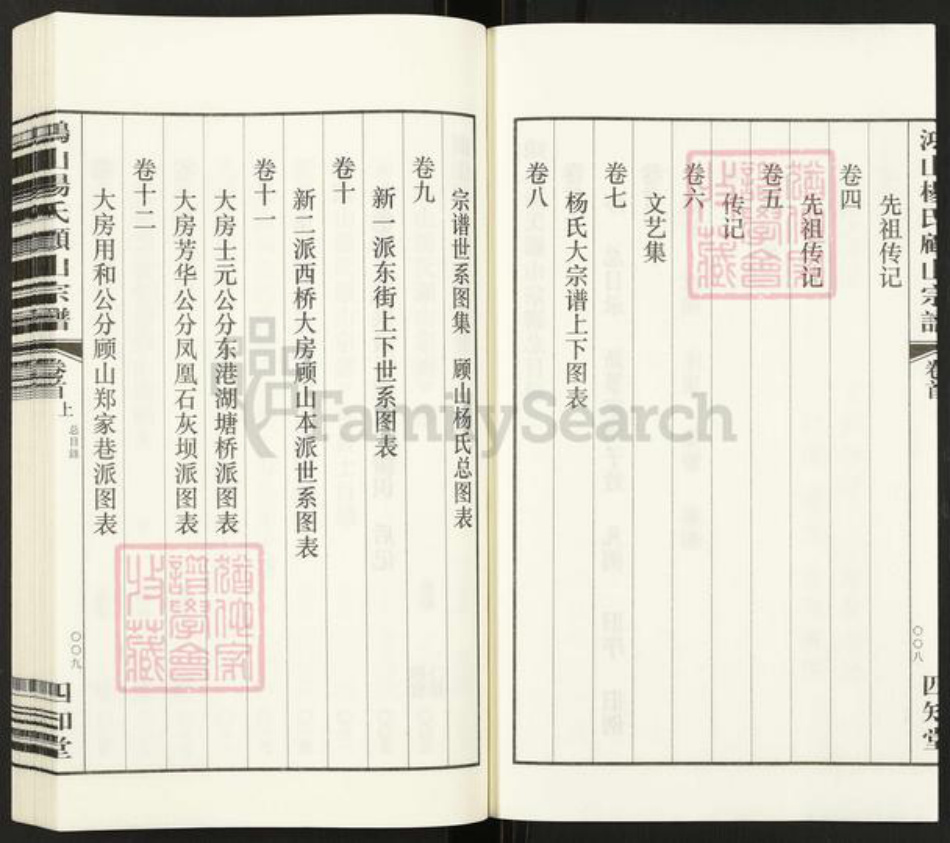 鸿山杨氏顾山宗谱
卷首
〇〇八
四知堂
先祖传记
卷四
先祖传记
卷五
传记
卷六
文艺集
卷七
杨氏大宗谱上下图表
卷八
宗谱世系图集 顾山杨氏总图表
卷九
新一派东街上下世系图表
卷十
新二派西桥大房顾山本派世系图表
卷十一
大房士元公分东港湖塘桥派图表
大房芳华公分凤凰石灰坝派图表
卷十二
大房用和公分顾山郑家巷派图表
卷首上
总目录
〇〇九
四知堂
FamilySearch
譜學會
收藏